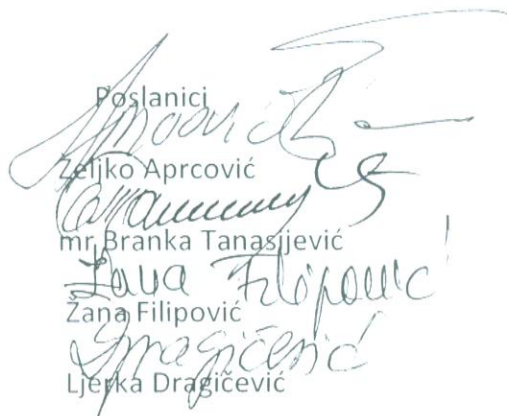 Poslanici
Željko Aprcović
mr Branka Tanasijević
Žana Filipović
Žana Filipović
Dragičević
Ljerka Dragičević